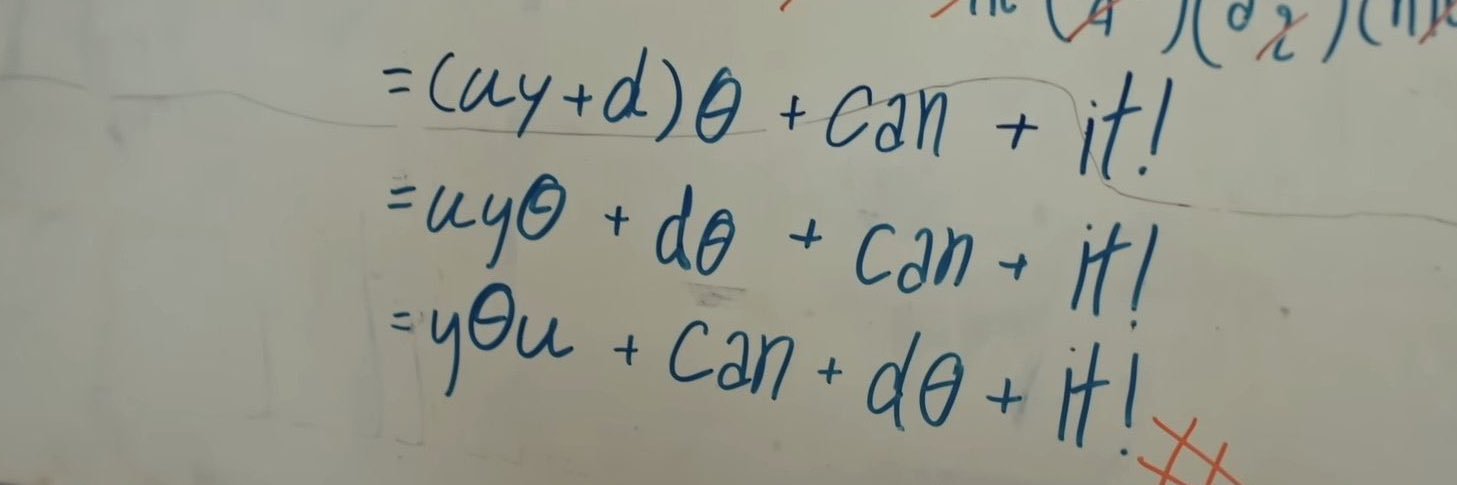 =(uy+d)θ + can + it!
=uyθ + dθ + can + it!
=yθu + can + dθ + it!